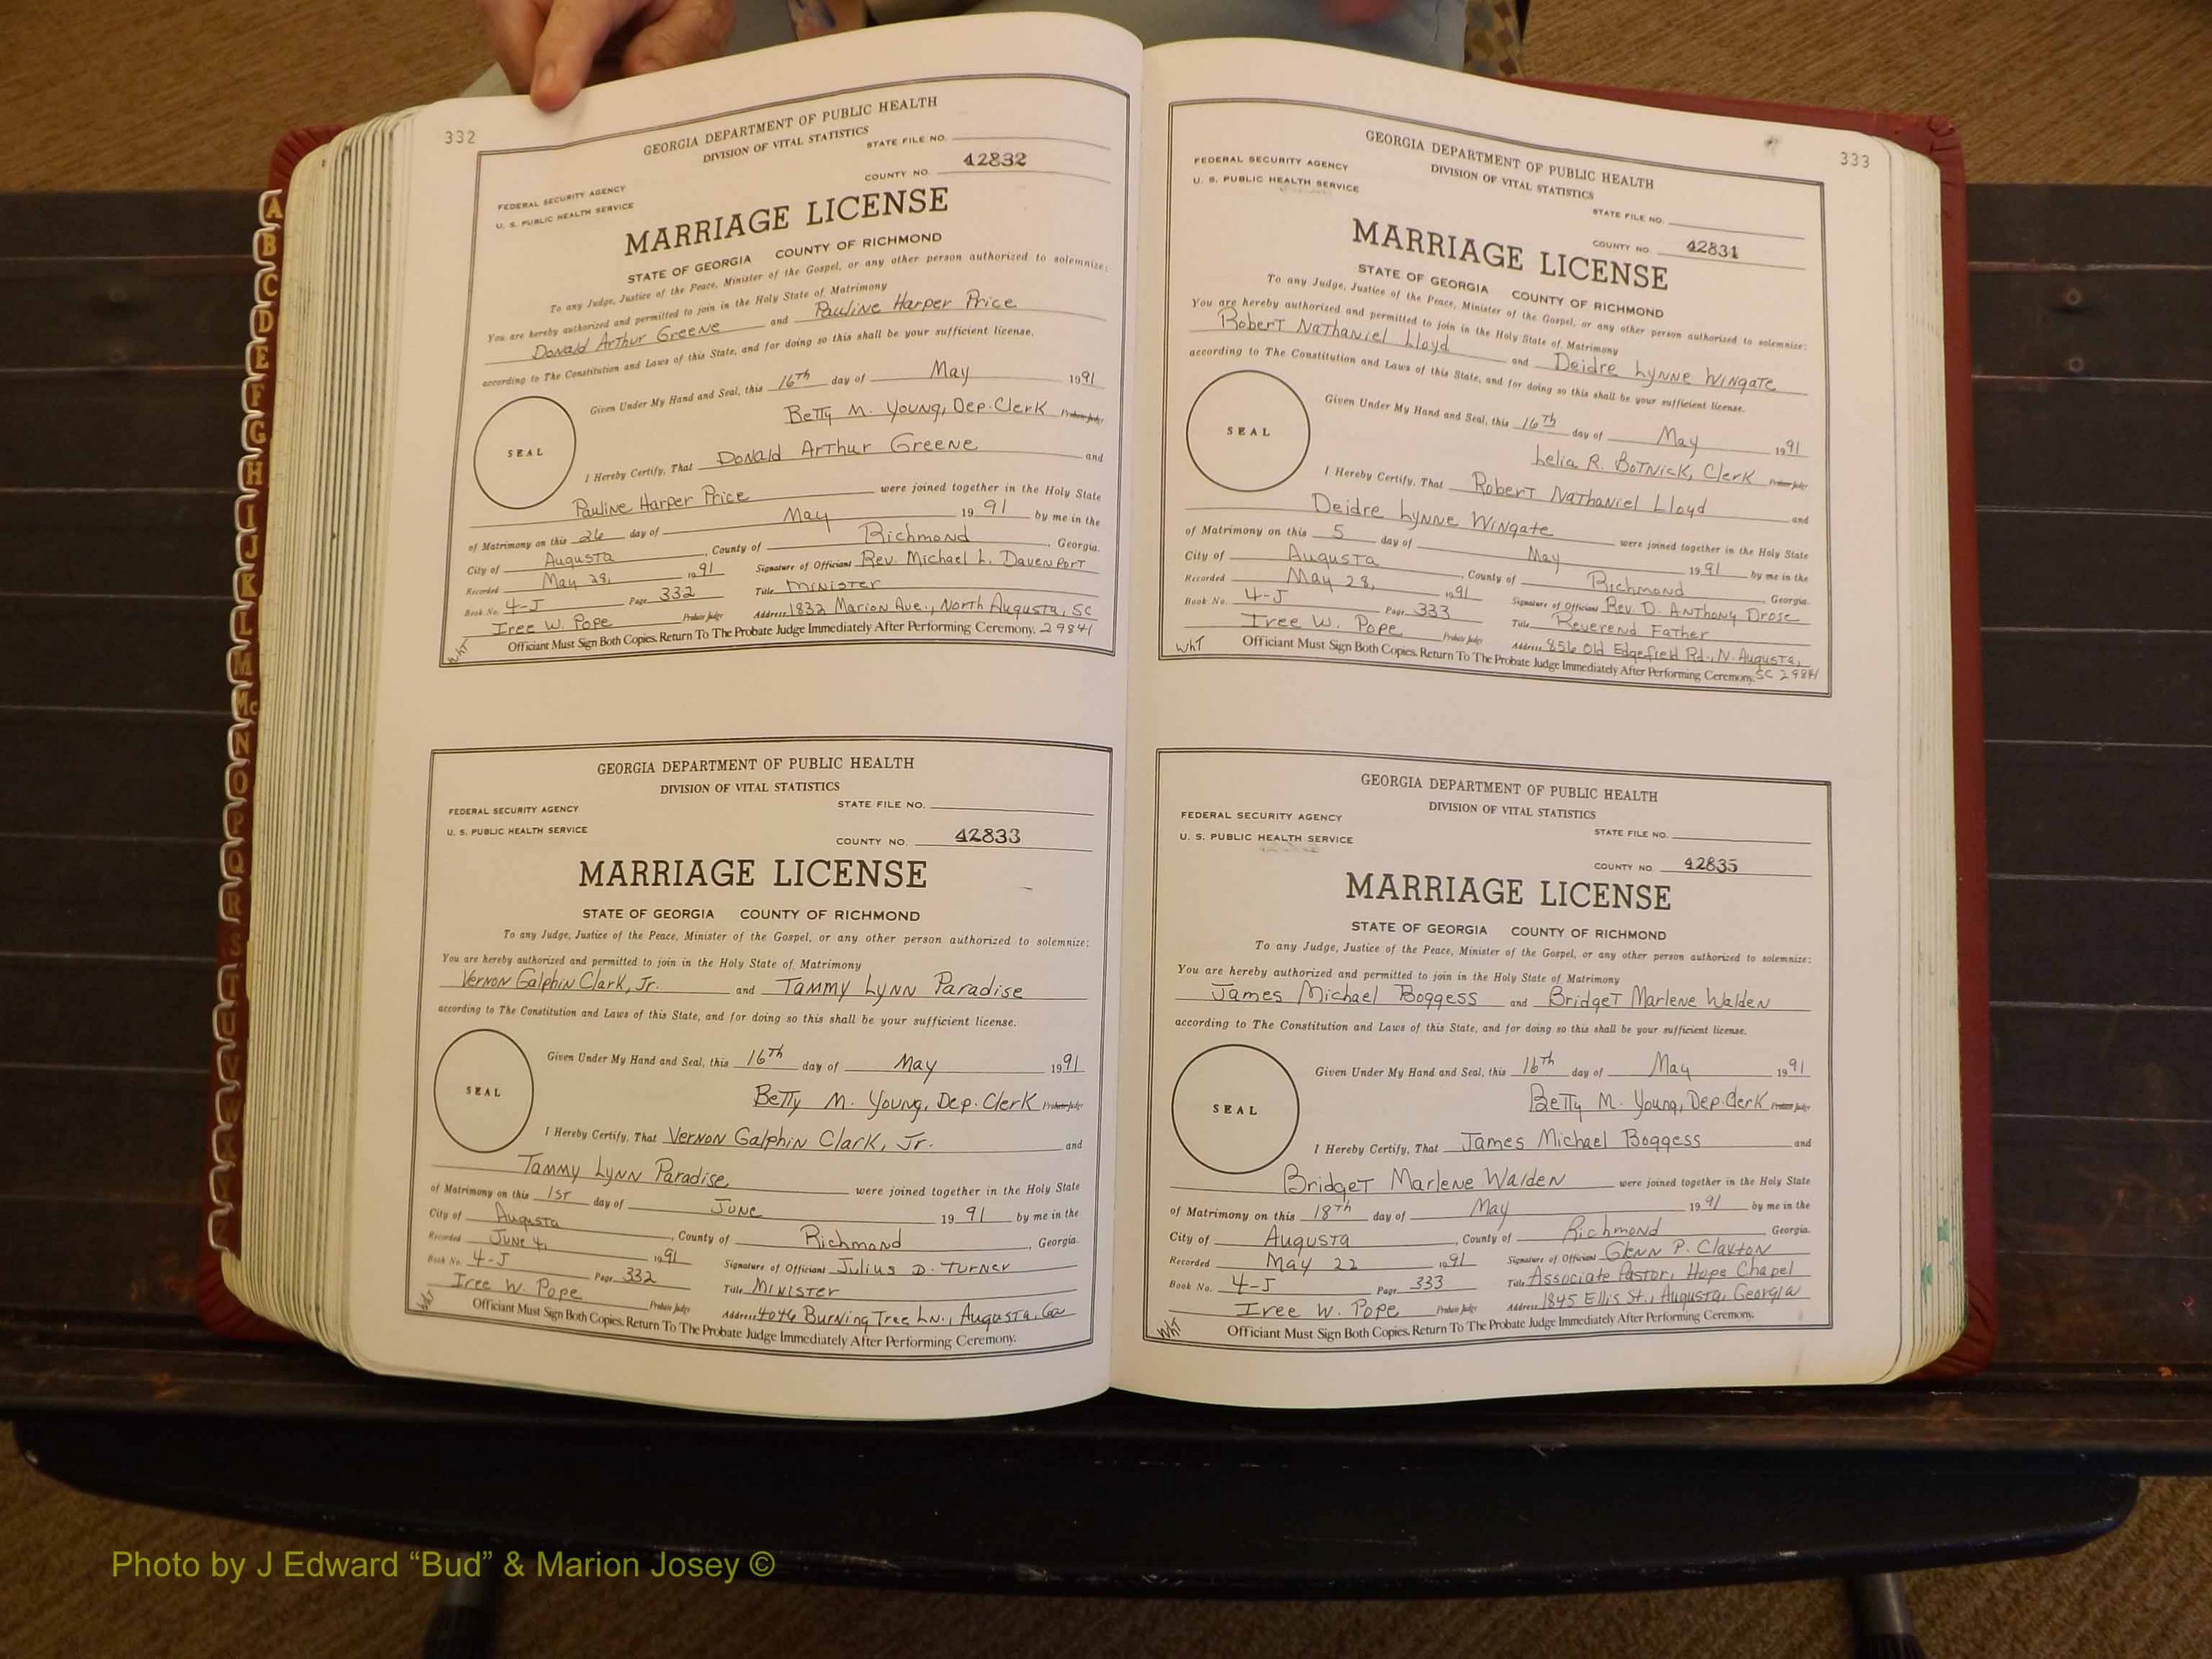 332
GEORGIA DEPARTMENT OF PUBLIC HEALTH
DIVISION OF VITAL STATISTICS
STATE FILE NO.
FEDERAL SECURITY AGENCY
U. S. PUBLIC HEALTH SERVICE
COUNTY NO. 42832
MARRIAGE LICENSE
STATE OF GEORGIA COUNTY OF RICHMOND
To any Judge, Justice of the Peace, Minister of the Gospel, or any other person authorized to solemnize:
You are hereby authorized and permitted to join in the Holy State of Matrimony
Donald Arthur Greene and Pauline Harper Price
according to The Constitution and Laws of this State, and for doing so this shall be your sufficient license.
Given Under My Hand and Seal, this 16th day of May 1991
Betty M. Young, Dep. Clerk Probate Judge
SEAL
I Hereby Certify, That Donald Arthur Greene and
Pauline Harper Price were joined together in the Holy State
of Matrimony on this 26 day of May 1991 by me in the
City of Augusta, County of Richmond, Georgia.
Recorded May 28, 1991 Signature of Officiant Rev. Michael L. Davenport
Book No. 4-J Page 332 Title Minister
Iree W. Pope Probate Judge Address 1832 Marion Ave., North Augusta, SC
WhT Officiant Must Sign Both Copies. Return To The Probate Judge Immediately After Performing Ceremony. 29841
GEORGIA DEPARTMENT OF PUBLIC HEALTH
DIVISION OF VITAL STATISTICS
FEDERAL SECURITY AGENCY STATE FILE NO.
U. S. PUBLIC HEALTH SERVICE
COUNTY NO. 42833
MARRIAGE LICENSE
STATE OF GEORGIA COUNTY OF RICHMOND
To any Judge, Justice of the Peace, Minister of the Gospel, or any other person authorized to solemnize:
You are hereby authorized and permitted to join in the Holy State of Matrimony
Vernon Galphin Clark, Jr. and Tammy Lynn Paradise
according to The Constitution and Laws of this State, and for doing so this shall be your sufficient license.
Given Under My Hand and Seal, this 16th day of May 1991
Betty M. Young, Dep. Clerk Probate Judge
SEAL
I Hereby Certify, That Vernon Galphin Clark, Jr. and
Tammy Lynn Paradise were joined together in the Holy State
of Matrimony on this 1st day of June 1991 by me in the
City of Augusta, County of Richmond, Georgia.
Recorded June 4, 1991 Signature of Officiant Julius D. Turner
Book No. 4-J Page 332 Title Minister
Iree W. Pope Probate Judge Address 4046 Burning Tree Ln., Augusta, Ga
WhT Officiant Must Sign Both Copies. Return To The Probate Judge Immediately After Performing Ceremony.
333
GEORGIA DEPARTMENT OF PUBLIC HEALTH
DIVISION OF VITAL STATISTICS
FEDERAL SECURITY AGENCY
U. S. PUBLIC HEALTH SERVICE
STATE FILE NO.
COUNTY NO. 42834
MARRIAGE LICENSE
STATE OF GEORGIA COUNTY OF RICHMOND
To any Judge, Justice of the Peace, Minister of the Gospel, or any other person authorized to solemnize:
You are hereby authorized and permitted to join in the Holy State of Matrimony
Robert Nathaniel Lloyd and Deidre Lynne Wingate
according to The Constitution and Laws of this State, and for doing so this shall be your sufficient license.
Given Under My Hand and Seal, this 16th day of May 1991
Lelia R. Botnick, Clerk Probate Judge
SEAL
I Hereby Certify, That Robert Nathaniel Lloyd and
Deidre Lynne Wingate were joined together in the Holy State
of Matrimony on this 5 day of May 1991 by me in the
City of Augusta, County of Richmond, Georgia.
Recorded May 28, 1991 Signature of Officiant Rev. D. Anthony Drose
Book No. 4-J Page 333 Title Reverend Father
Iree W. Pope Probate Judge Address 856 Old Edgefield Rd., N. Augusta,
WhT Officiant Must Sign Both Copies. Return To The Probate Judge Immediately After Performing Ceremony. SC 29841
GEORGIA DEPARTMENT OF PUBLIC HEALTH
DIVISION OF VITAL STATISTICS
FEDERAL SECURITY AGENCY
U. S. PUBLIC HEALTH SERVICE
STATE FILE NO.
COUNTY NO 42835
MARRIAGE LICENSE
STATE OF GEORGIA COUNTY OF RICHMOND
To any Judge, Justice of the Peace, Minister of the Gospel, or any other person authorized to solemnize:
You are hereby authorized and permitted to join in the Holy State of Matrimony
James Michael Boggess and Bridget Marlene Walden
according to The Constitution and Laws of this State, and for doing so this shall be your sufficient license.
Given Under My Hand and Seal, this 16th day of May 1991
Betty M. Young, Dep. Clerk Probate Judge
SEAL
I Hereby Certify, That James Michael Boggess and
Bridget Marlene Walden were joined together in the Holy State
of Matrimony on this 18th day of May 1991 by me in the
City of Augusta, County of Richmond Georgia.
Recorded May 22 1991 Signature of Officiant Glenn P. Claxton
Book No. 4-J Page 333 Title Associate Pastor, Hope Chapel
Iree W. Pope Probate Judge Address 1845 Ellis St., Augusta, Georgia
WhT Officiant Must Sign Both Copies. Return To The Probate Judge Immediately After Performing Ceremony.
A
B
C
D
E
F
G
H
I
J
K
L
M
Mc
N
O
P
Q
R
S
T
U
V
W
Photo by J Edward “Bud” & Marion Josey ©